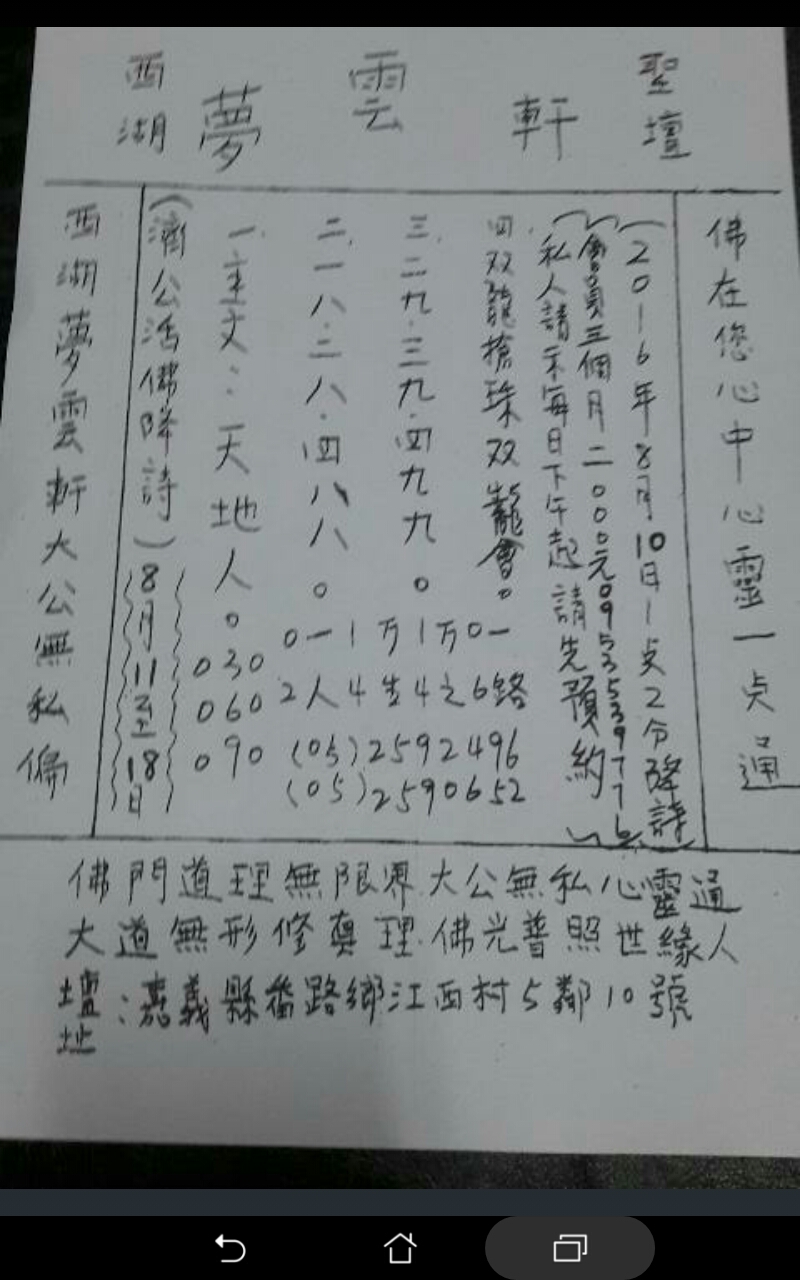 西湖 夢雲軒 聖壇
佛在您心中心靈一点通
(2016年8月10日1点2分降詩)
(會員三個月二000元0953539776)
(私人請示每日下午起請先預約)
四双龍搶珠双龍會。
三.二九.三九.四九九。
二.一八.二八.四八八。
一.主文:天地人。
(濟公活佛降詩)
8月11至18日
西湖夢雲軒大公無私偏
030
060
090
0一1万1万0一
2人4生4之6路
(05)2592496
(05)2590652
佛門道理無限界.大公無私心靈通
大道無形修真理.佛光普照世緣人
壇址:嘉義縣番路鄉江西村5鄰10號